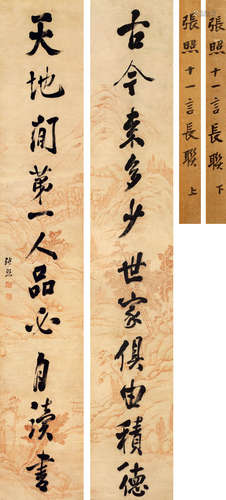 古今来多少世家俱由積德
天地間第一人品必自讀書
張照
張照十一言長聯 上
張照十一言長聯 下